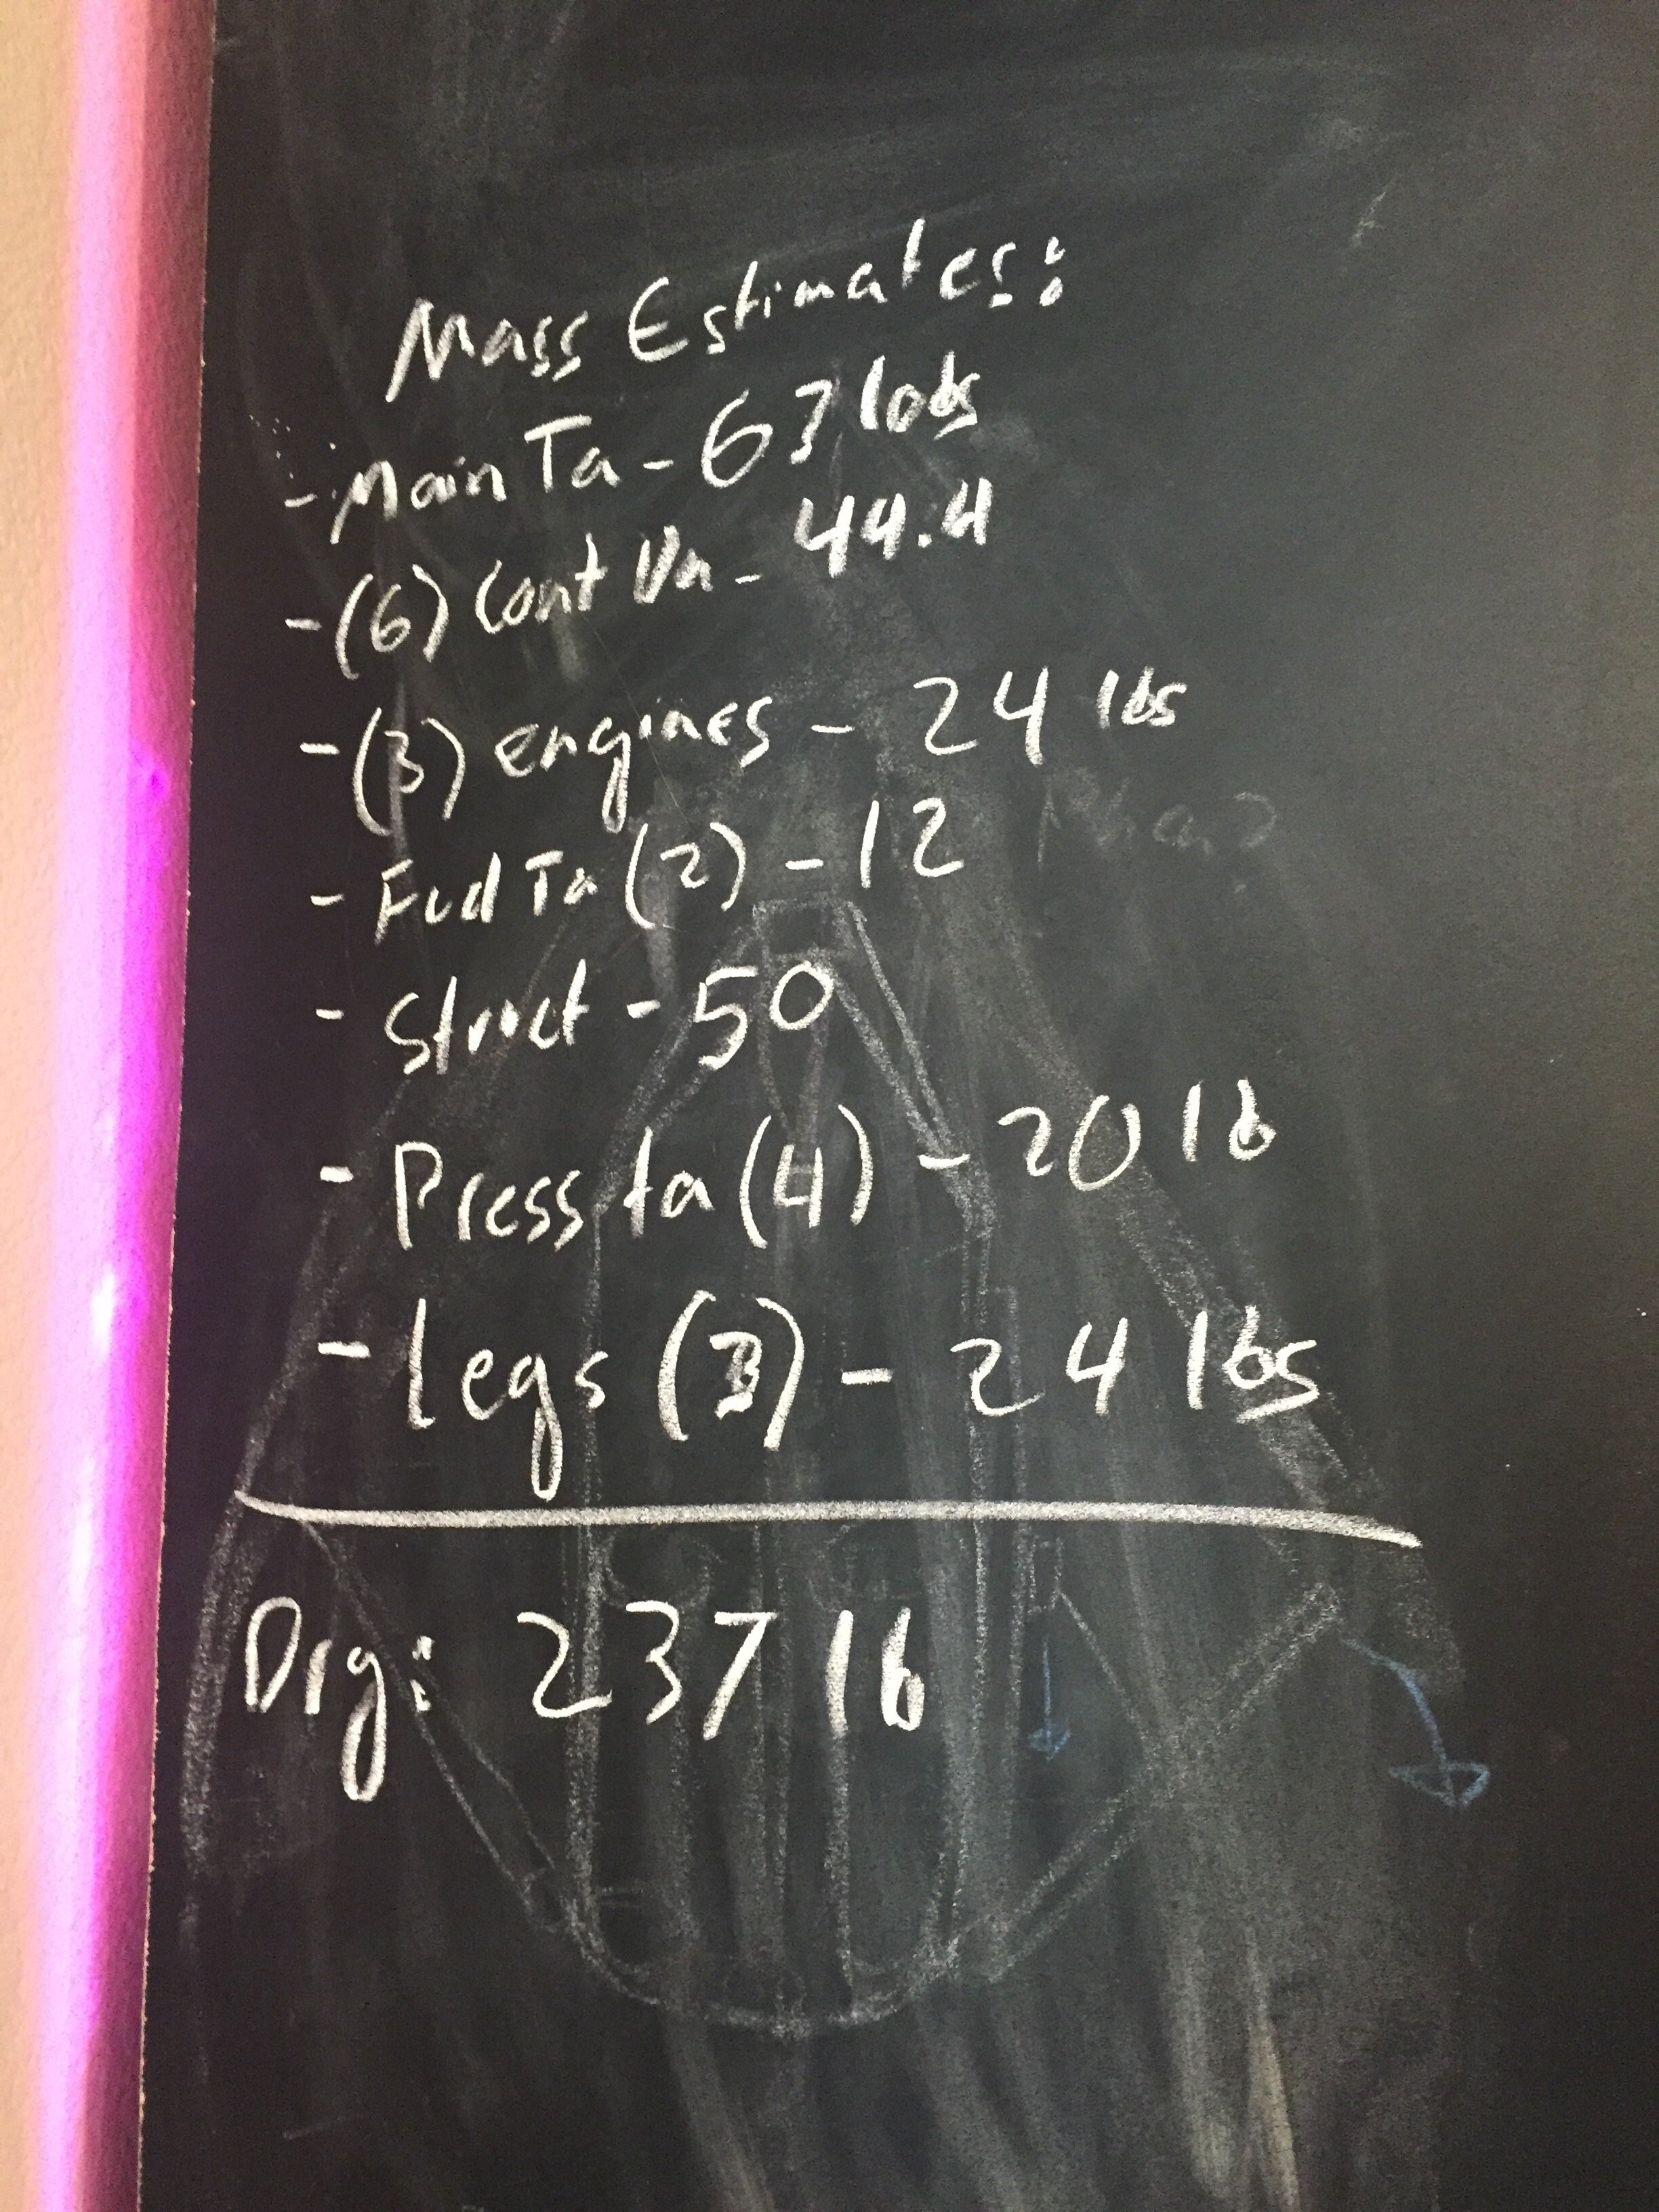 Mass Estimates:
- Main Ta - 63 lbs
- (6) Cont Va - 44.4
- (3) engines - 24 lbs
- Fuel Ta (2) - 12
- Struct - 50
- Press ta (4) - 20 lb
- legs (3) - 24 lbs
Dry: 237 lb